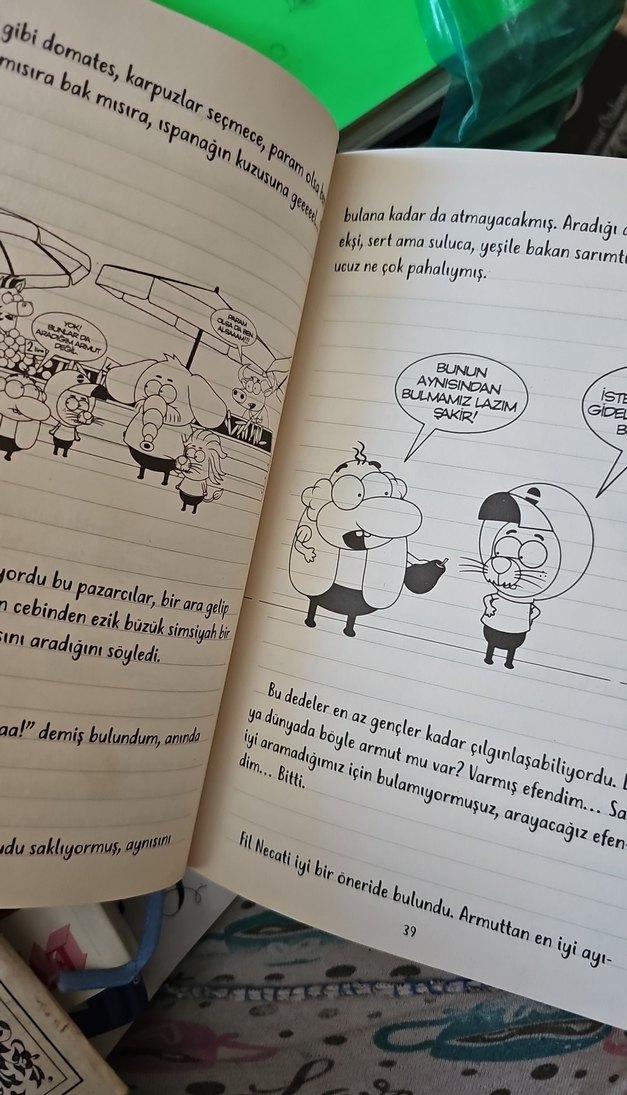 gibi domates, karpuzlar seçmece, param olsa
mısıra bak mısıra, ıspanağın kuzusuna geeeel!..
YOK!
BUNLAR DA
ARADIĞIM ARMUT
DEĞİL
PARAM
OLSA DA BEN
ALSAAAM!!!
bu pazarcılar, bir ara gelip
cebinden ezik büzük simsiyah bir
aradığını söyledi.
demiş bulundum, anında
saklıyormuş, aynısını
bulana kadar da atmayacakmış. Aradığı
ekşi, sert ama suluca, yeşile bakan
ucuz ne çok pahalıymış.
BUNUN
AYNISINDAN
BULMAMIZ LAZIM
ŞAKİR!
Bu dedeler en az gençler kadar çılgınlaşabiliyordu.
ya dünyada böyle armut mu var? Varmış efendim...
iyi aramadığımız için bulamıyormuşuz, arayacağız efen-
dim... Bitti.
Fil Necati iyi bir öneride bulundu. Armuttan en iyi ayı-
39